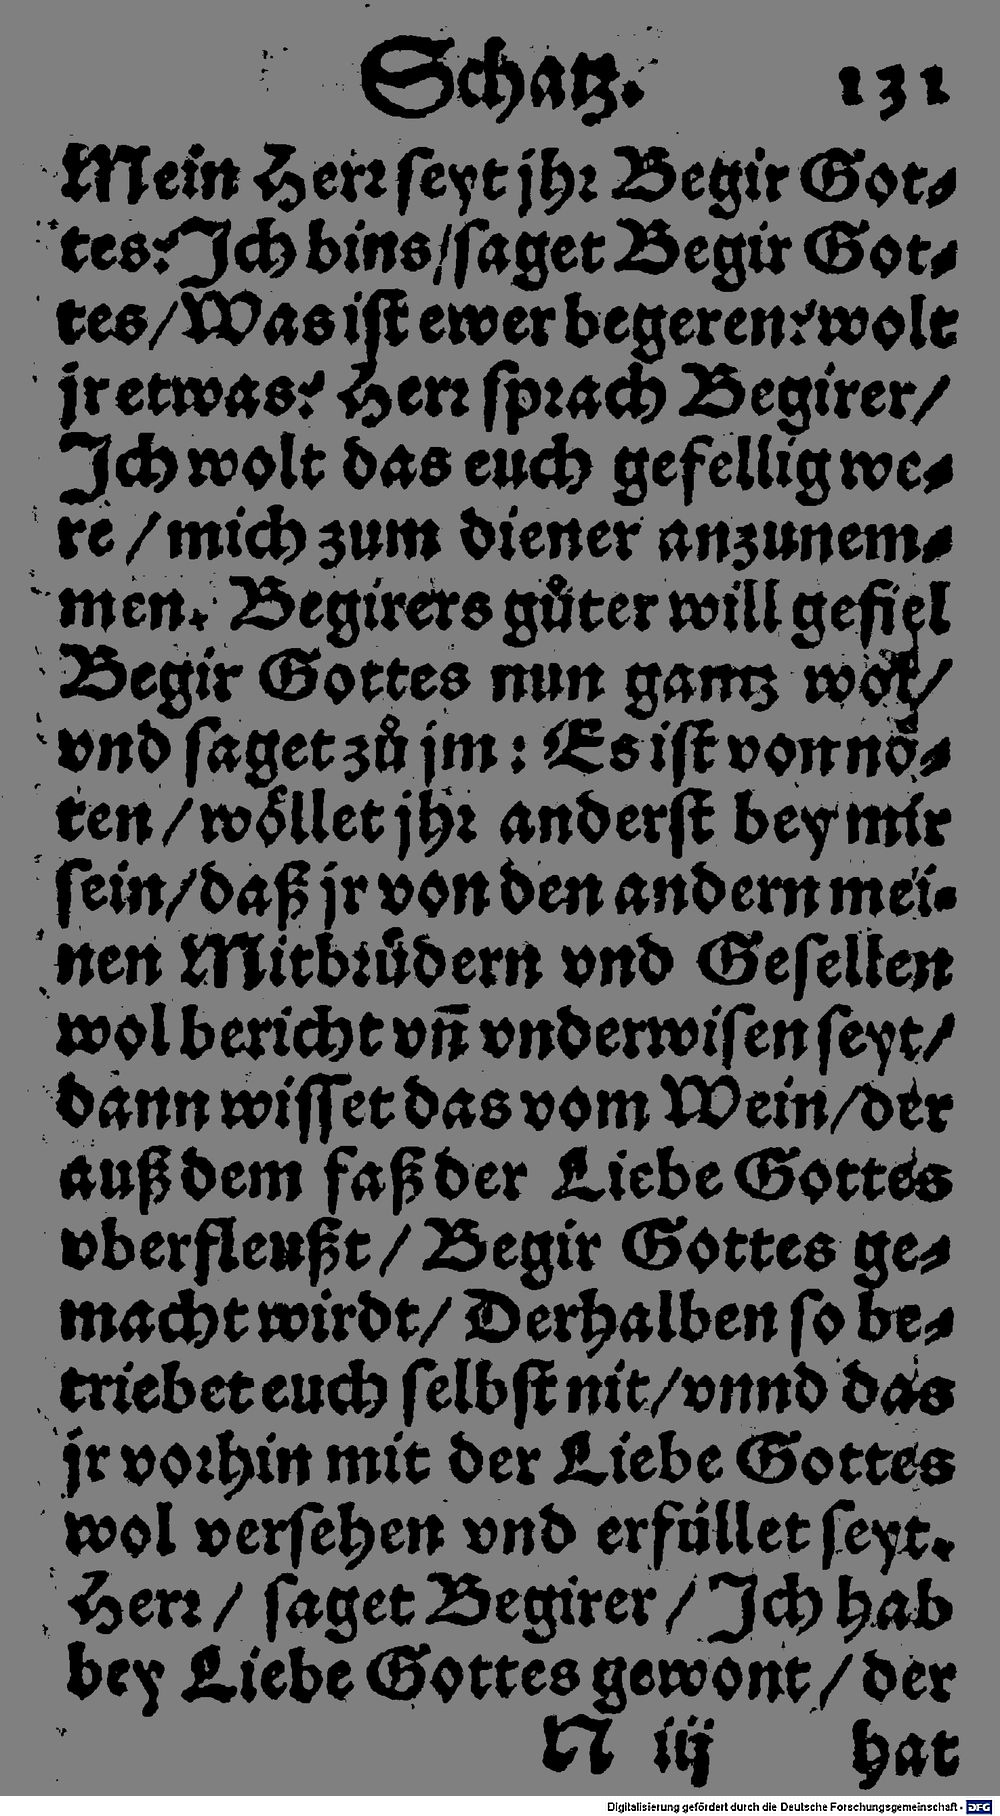 Schatz. 131
Mein Herr ſeyt jhr Begir Got⸗
tes? Ich bins/ ſaget Begir Got⸗
tes/ Was iſt ewer begeren? wolt
jr etwas? Herr ſprach Begirer/
Ich wolt das euch gefellig we⸗
re / mich zum diener anzunem⸗
men. Begirers gůter will gefiel
Begir Gottes nun gantz wol/
vnd ſaget zů jm : Es iſt von nö⸗
ten / wöllet jhr anderſt bey mir
ſein/ daß jr von den andern mei⸗
nen Mitbrůdern vnd Geſellen
wol bericht vñ vnderwiſen ſeyt/
dann wiſſet das vom Wein/ der
auß dem faß der Liebe Gottes
vberfleußt / Begir Gottes ge⸗
macht wirdt/ Derhalben ſo be⸗
triebet euch ſelbſt nit/ vnnd das
jr vorhin mit der Liebe Gottes
wol verſehen vnd erfüllet ſeyt.
Herr / ſaget Begirer / Ich hab
bey Liebe Gottes gewont / der
N iij hat
Digitalisierung gefördert durch die Deutsche Forschungsgemeinschaft - DFG